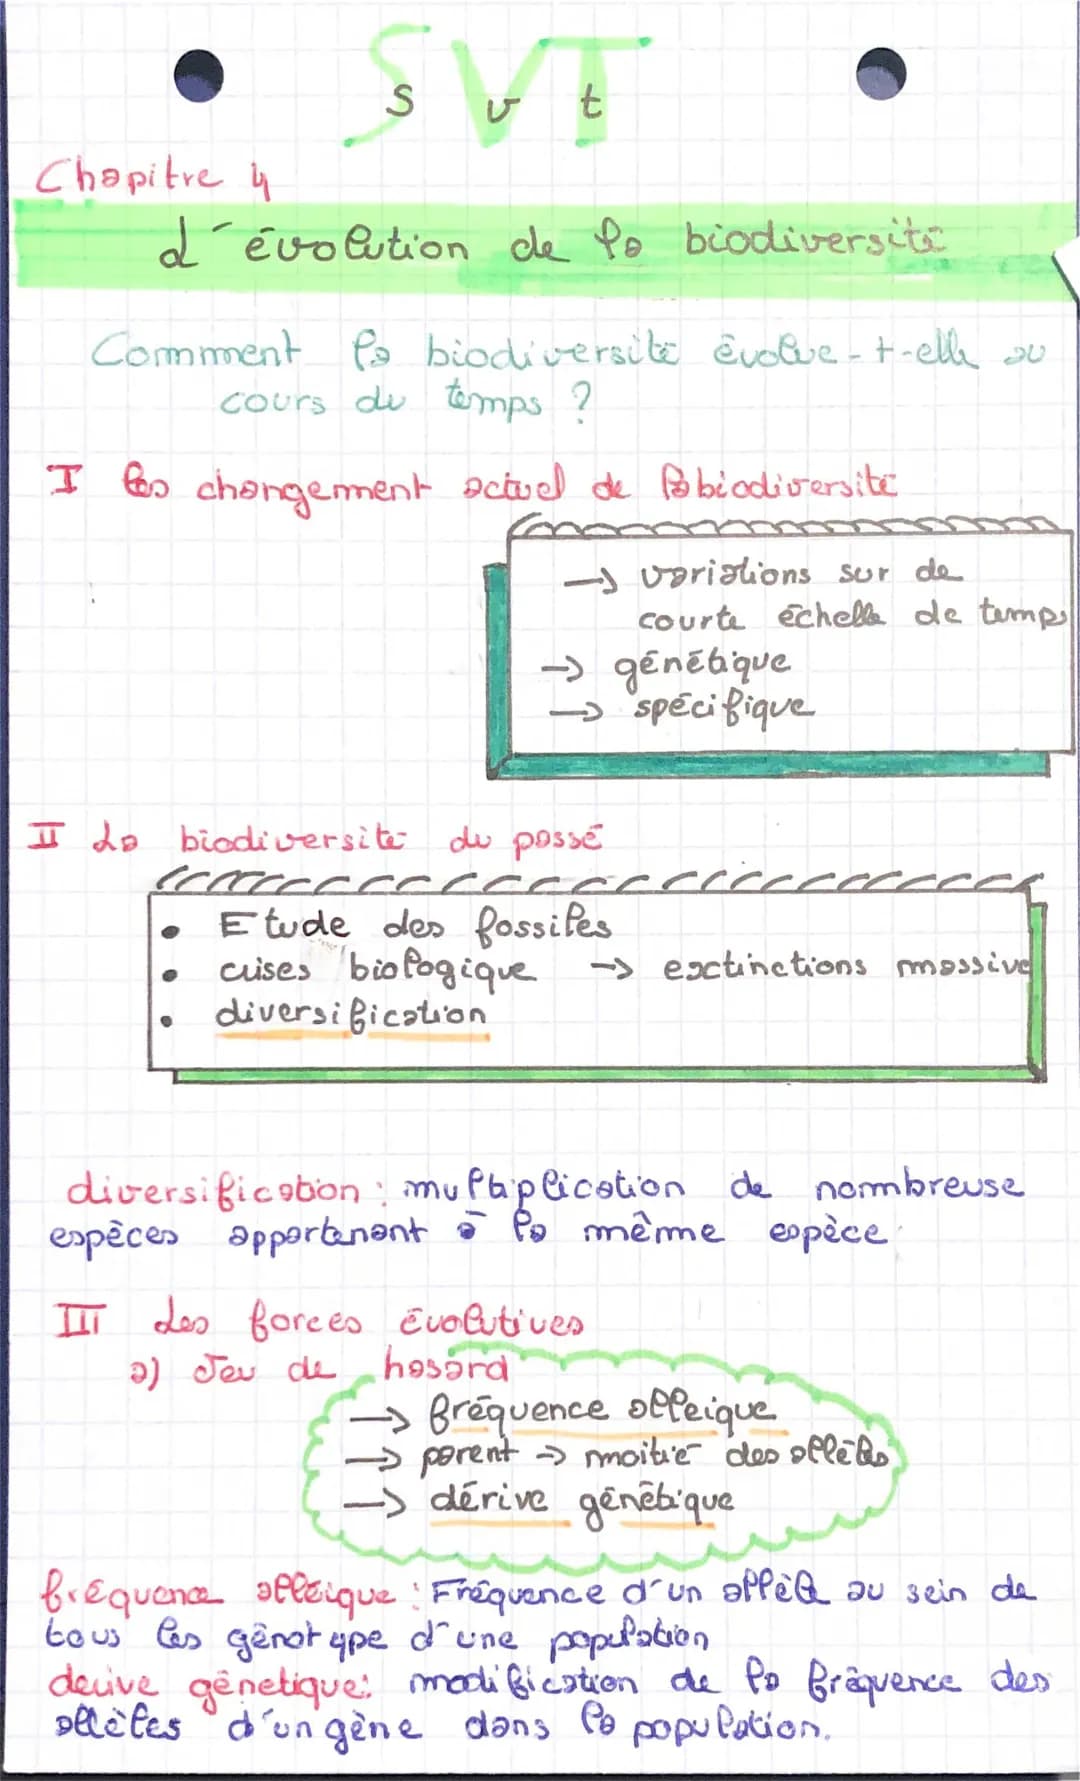 SVT
s v t
Chapitre 4
L'évolution de la biodiversité
Comment la biodiversité évolue-t-elle au
cours du temps ?
I les changement actuel de la biodiversité
→ variations sur de
courte échelle de temps
→ génétique
→ spécifique
II La biodiversité du passé
• Etude des fossiles
• crises biologique → extinctions massive
• diversification
diversification : multiplication de nombreuse
espèces appartenant à la même espèce
III Les forces évolutives
a) Jeu de hasard
→ fréquence alleique
→ parent → moitié des allèles
→ dérive génétique
fréquence alléique : Fréquence d'un allèle au sein de
tous les génotype d'une population
derive génetique : modification de la fréquence des
allèles d'un gène dans la population.